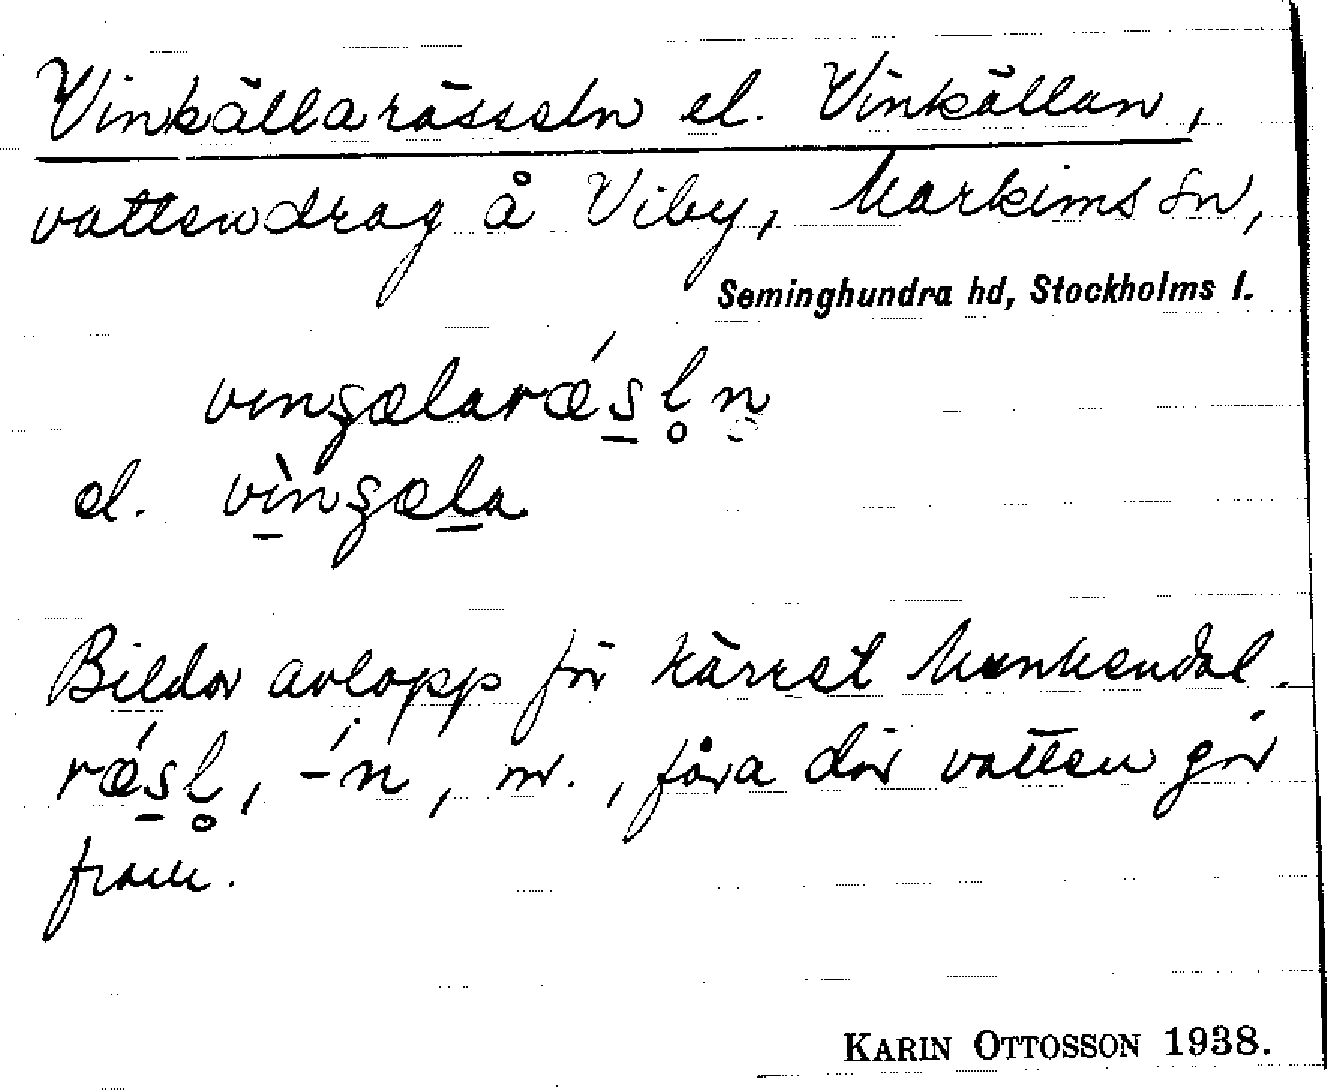 Vinkällarässeln el. Vinkällan,
vattendrag å Viby, Markims sn,
Seminghundra hd, Stockholms l.
el.
Bildar avlopp för kärret Munkendal.
m., fåra där vatten går
fram.
KARIN OTTOSSON 1938.